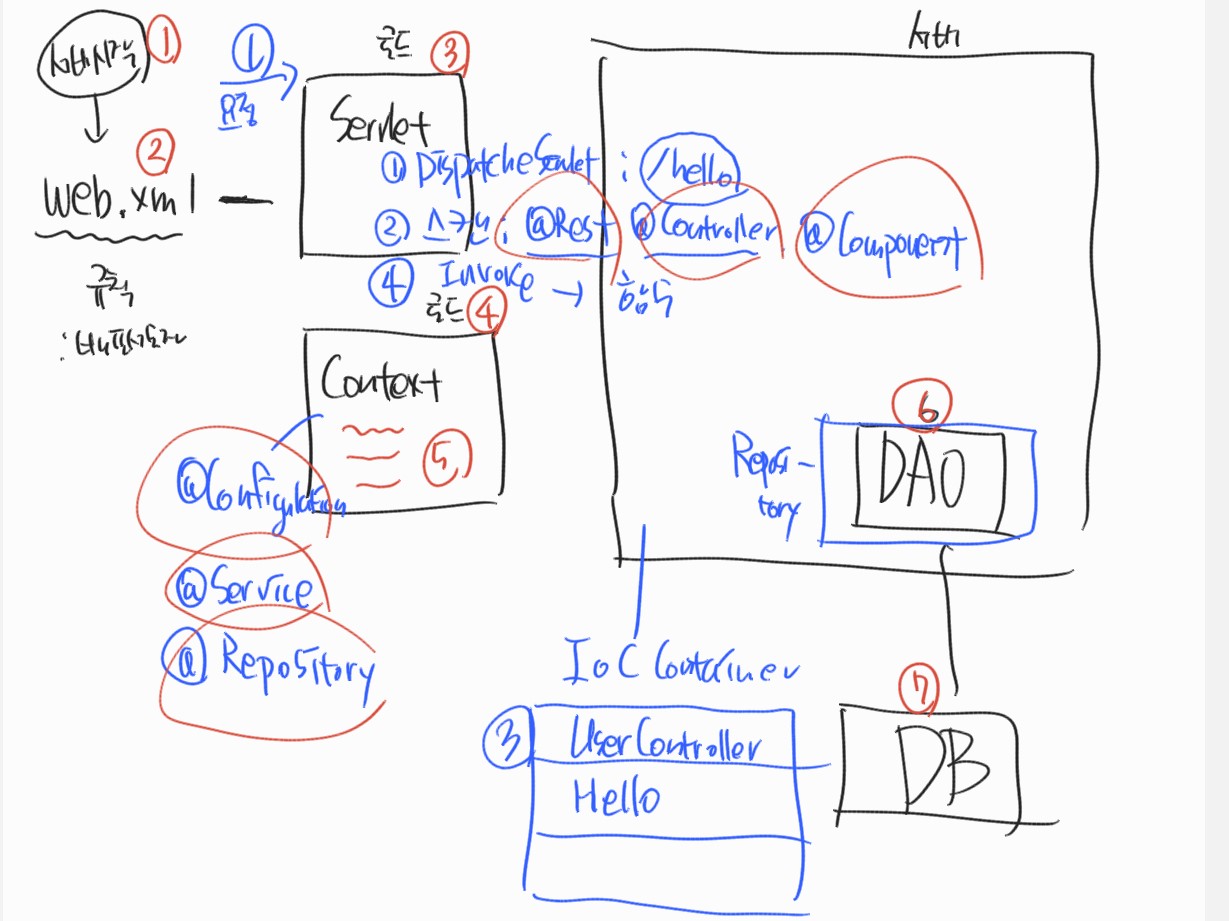 서버시작 ①
① 요청
로드 ③
서버
② web.xml
규칙
Servlet
① DispatcheServlet : /hello
② 스캔 : @Rest @Controller @Component
④ Invoke →
로드 ④
Context
⑤
@Configulation
@Service
@Repository
⑥
DAO
Reposi-
tory
IoC Container
③ UserController
Hello
⑦
DB